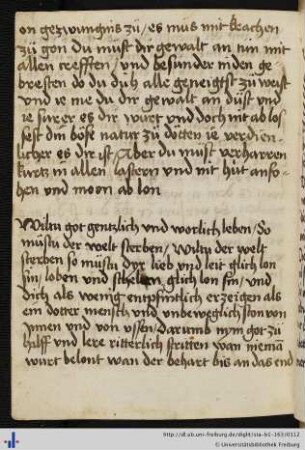 on gezwungnis zü / es müs mit krachen
zü gon du müst dir gewalt an tün mit
allen creefften / vnd besunder in den ge
bresten do du dich aller geneigtest zü weist
vnd ie me du dir gewalt an düst vnd
ie surer es dir würt vnd doch nit ablo
sest din böse natur zü dotten ie verdien
licher es dir ist / Aber du müst verharren
kurtz in allen lastern vnd nit hut anso
hen vnd morn ab lon
Wiltu got gentzlich vnd worlich leben / So
müstu der welt sterben / Wiltu der welt
sterben so müstu dyr lieb vnd leit glich lon
sin / loben vnd schelten glich lon sin / vnd
dich als wenig entpfintlich erzeigen als
ein dotter mensch vnd unbeweglich ston von
innen vnd von ussen / darumb nym got zü
hülff vnd lere ritterlich stritten wan nieman
wurt belont wan der behart bis an das end
http://dl.ub.uni-freiburg.de/diglit/sta-b1-163/0112
© Universitätsbibliothek Freiburg